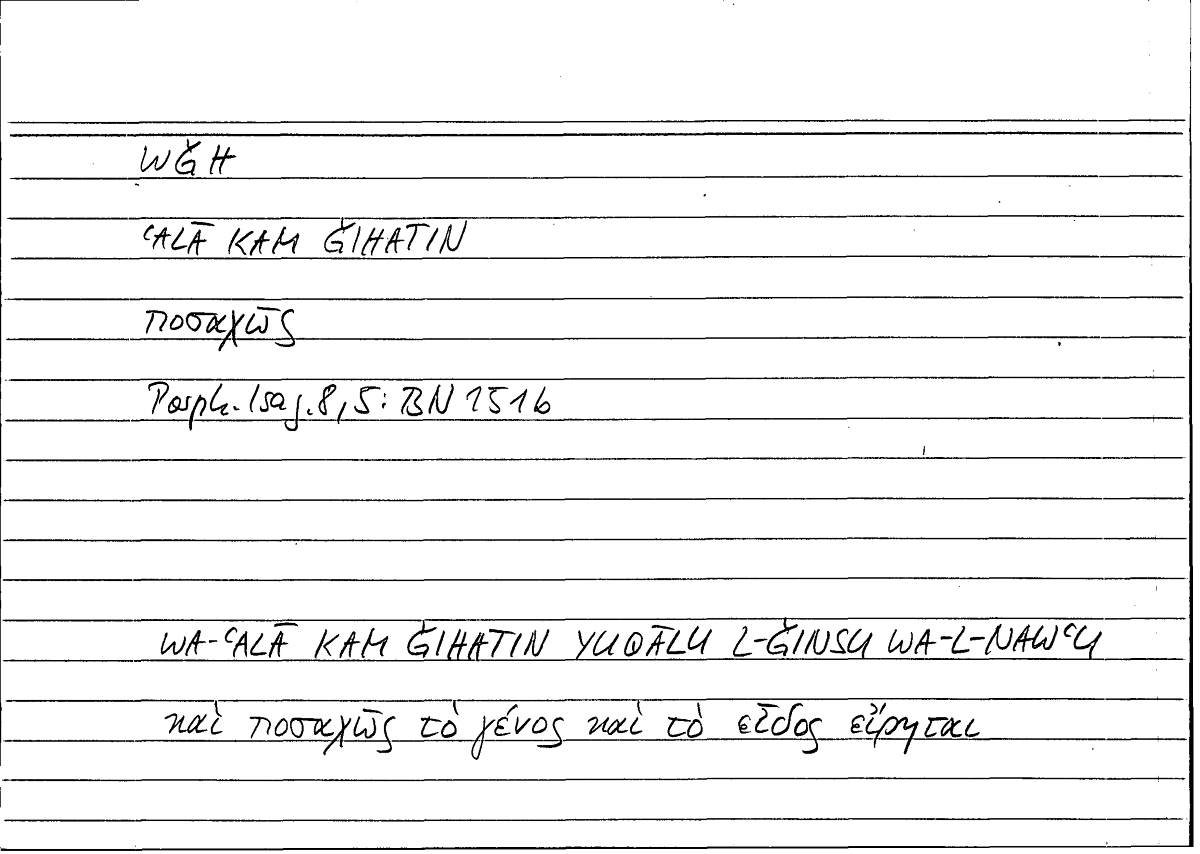 WǦH
ʿALĀ KAM ǦIHATIN
ποσαχῶς
Porph. Isag. 8,5: BN 151b
WA-ʿALĀ KAM ǦIHATIN YUQĀLU L-ǦINSU WA-L-NAWʿU
καὶ ποσαχῶς τὸ γένος καὶ τὸ εἶδος εἴρηται